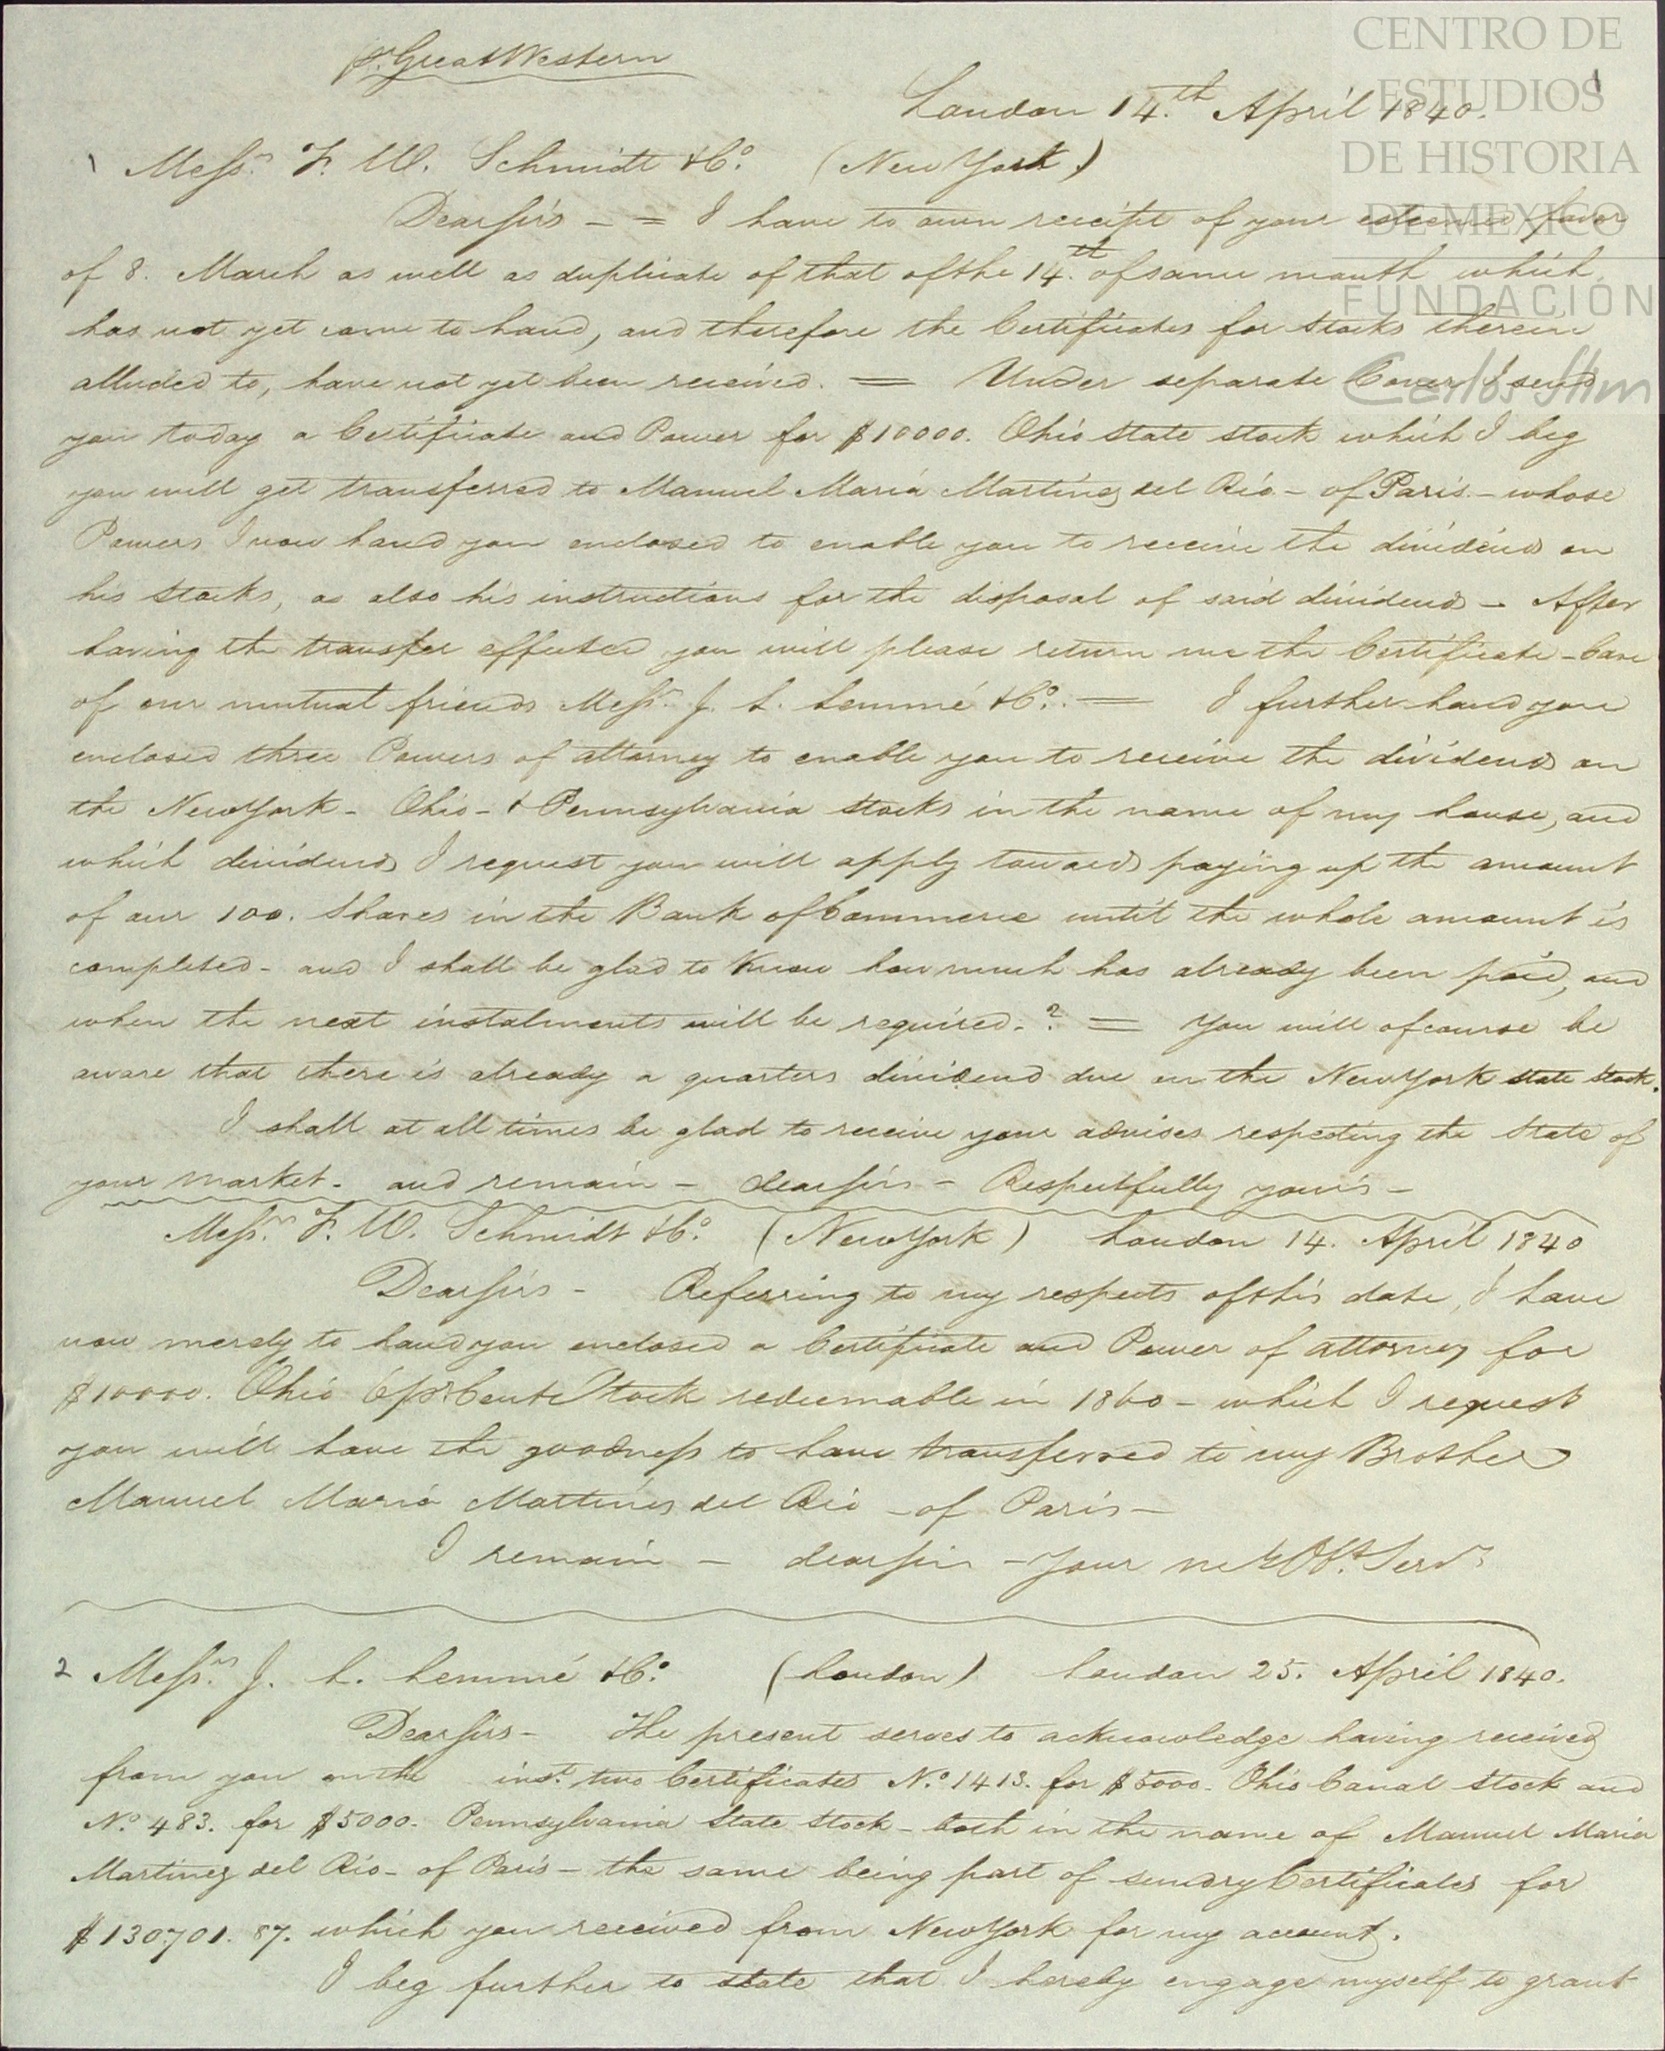 pr. Great Western
CENTRO DE
ESTUDIOS
DE HISTORIA
DE MEXICO
FUNDACIÓN
Carlos Slim
1
London 14.th April 1840.
1 Messrs. F. W. Schmidt & Co. (New York)
Dear Sirs — = I have to own receipt of your esteemed favor
of 8. March as well as duplicate of that of the 14.th of same month which
has not yet come to hand, and therefore the Certificates for Stocks therein
alluded to, have not yet been received. = Under separate Cover I send
you today a Certificate and Power for $10000. Ohio State stock which I beg
you will get transferred to Manuel María Martinez del Rio - of Paris - whose
Powers I now hand you enclosed to enable you to receive the dividends on
his Stocks, as also his instructions for the disposal of said dividends - After
having the transfer effected you will please return me the Certificate - Care
of our mutual friends Messrs. J. L. Lemmé & Co. = I further hand you
enclosed three Powers of attorney to enable you to receive the dividends on
the New York - Ohio - & Pennsylvania stocks in the name of my house, and
which dividends I request you will apply towards paying up the amount
of our 100. Shares in the Bank of Commerce until the whole amount is
completed - and I shall be glad to know how much has already been paid, and
when the next instalments will be required. ? = You will of course be
aware that there is already a quarters dividend due on the New York State Stock.
I shall at all times be glad to receive your advises respecting the State of
your market - and remain - dear Sirs - Respectfully yours -
Messrs. F. W. Schmidt & Co. (New York) London 14. April 1840
Dear Sirs - Referring to my respects of this date, I have
now merely to hand you enclosed a Certificate and Power of attorney for
$10000. Ohio 6 pr Cents Stock redeemable in 1860 - which I request
you will have the goodness to have transferred to my Brother
Manuel María Martinez del Rio - of Paris -
I remain - dear Sirs - Your mt Obt. Servt
2 Messrs. J. L. Lemmé & Co. (London) London 25. April 1840.
Dear Sirs - The present serves to acknowledge having received
from you on the inst. two Certificates No. 1413. for $5000. Ohio Canal Stock and
No. 483. for $5000. Pennsylvania State Stock - both in the name of Manuel Maria
Martinez del Rio - of Paris - the same being part of sundry Certificates for
$130701. 87. which you received from New York for my account.
I beg further to state that I hereby engage myself to grant